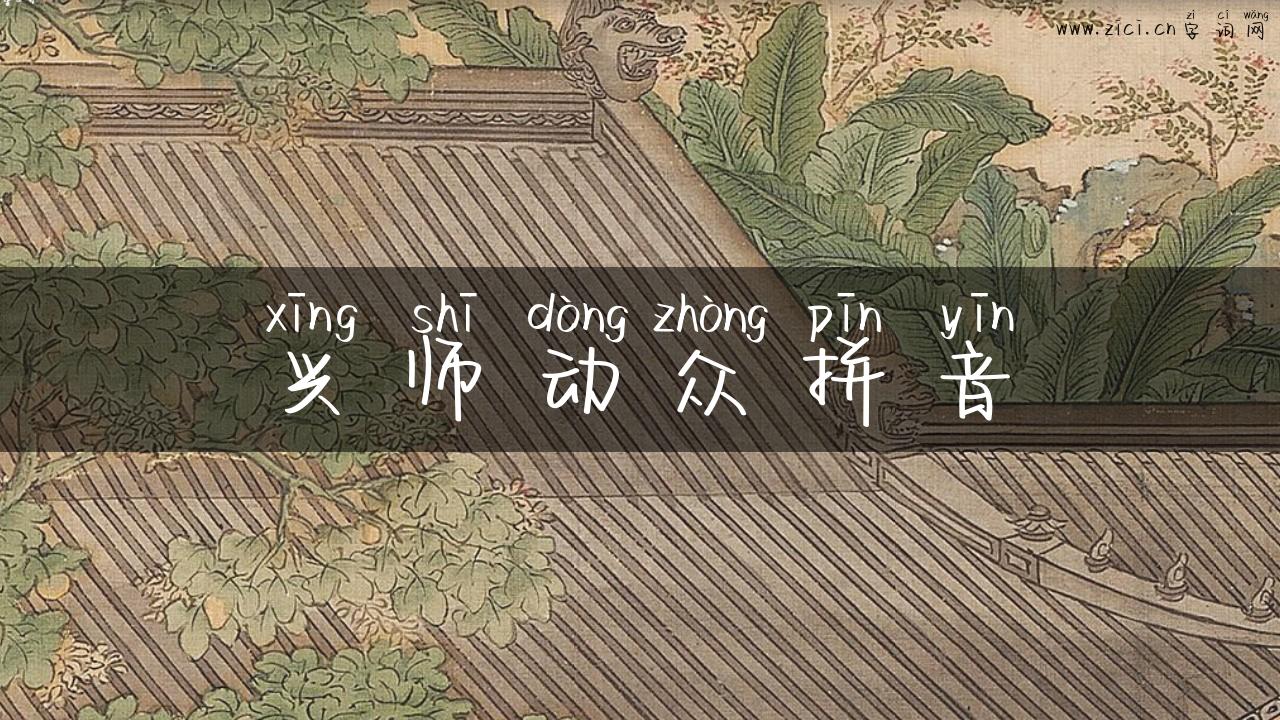 zì cí wǎng
www.zici.cn 字词网
xīng shī dòng zhòng pīn yīn
兴师动众拼音